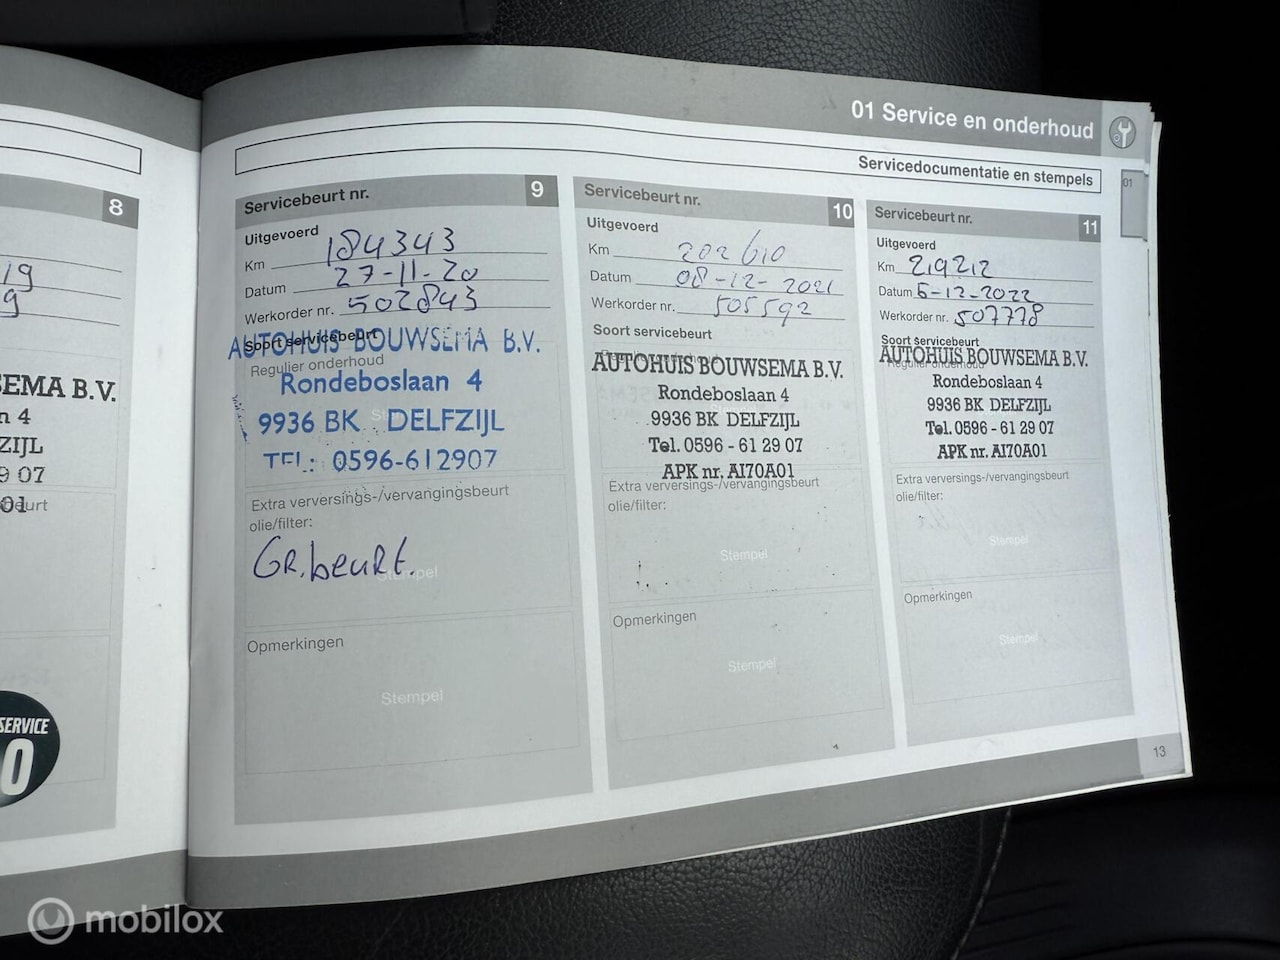 01 Service en onderhoud
Servicedocumentatie en stempels
01
8
19
9
SEMA B.V.
n 4
ZIJL
9 07
01
beurt
SERVICE
0
Servicebeurt nr. 9
Uitgevoerd
Km 184343
Datum 27-11-20
Werkorder nr. 502843
Soort servicebeurt
AUTOHUIS BOUWSEMA B.V.
Regulier onderhoud
Rondeboslaan 4
9936 BK DELFZIJL
TEL: 0596-612907
Extra verversings-/vervangingsbeurt
olie/filter:
GR. beurt.
Stempel
Opmerkingen
Stempel
Servicebeurt nr. 10
Uitgevoerd
Km 202610
Datum 08-12-2021
Werkorder nr. 505592
Soort servicebeurt
AUTOHUIS BOUWSEMA B.V.
Rondeboslaan 4
9936 BK DELFZIJL
Tel. 0596 - 61 29 07
APK nr. AI70A01
Extra verversings-/vervangingsbeurt
olie/filter:
Stempel
Opmerkingen
Stempel
Servicebeurt nr. 11
Uitgevoerd
Km 219212
Datum 5-12-2022
Werkorder nr. 507778
Soort servicebeurt
AUTOHUIS BOUWSEMA B.V.
Regulier onderhoud
Rondeboslaan 4
9936 BK DELFZIJL
Tel. 0596 - 61 29 07
APK nr. AI70A01
Extra verversings-/vervangingsbeurt
olie/filter:
Stempel
Opmerkingen
Stempel
13
mobilox